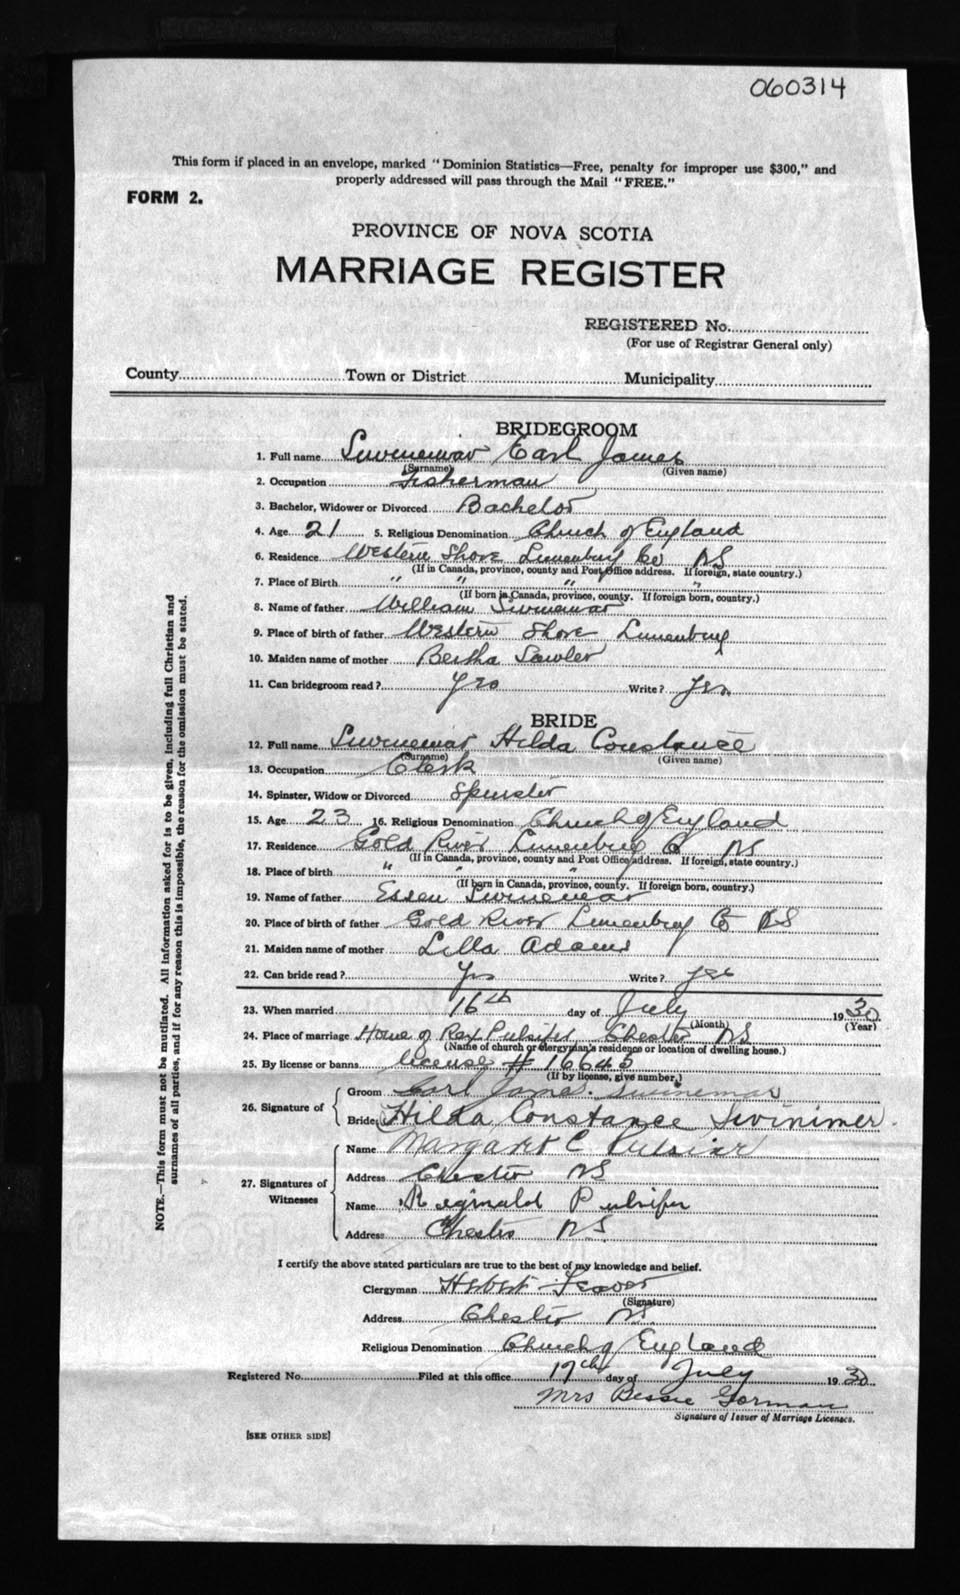 060314
This form if placed in an envelope, marked "Dominion Statistics—Free, penalty for improper use $300," and
properly addressed will pass through the Mail "FREE."
FORM 2.
PROVINCE OF NOVA SCOTIA
MARRIAGE REGISTER
REGISTERED No.
(For use of Registrar General only)
County Town or District Municipality
BRIDEGROOM
1. Full name Swinemar Earl James
(Surname) (Given name)
2. Occupation Fisherman
3. Bachelor, Widower or Divorced Bachelor
4. Age 21 5. Religious Denomination Church of England
6. Residence Western Shore Lunenburg Co NS
(If in Canada, province, county and Post Office address. If foreign, state country.)
7. Place of Birth " " " "
(If born in Canada, province, county. If foreign born, country.)
8. Name of father William Swinemar
9. Place of birth of father Western Shore Lunenburg
10. Maiden name of mother Bertha Sawler
11. Can bridegroom read? Yes Write? Yes
BRIDE
12. Full name Swinemar Hilda Constance
(Surname) (Given name)
13. Occupation Clerk
14. Spinster, Widow or Divorced Spinster
15. Age 23 16. Religious Denomination Church of England
17. Residence Gold River Lunenburg Co NS
(If in Canada, province, county and Post Office address. If foreign, state country.)
18. Place of birth " " "
(If born in Canada, province, county. If foreign born, country.)
19. Name of father Essen Swinemar
20. Place of birth of father Gold River Lunenburg Co NS
21. Maiden name of mother Lilla Adams
22. Can bride read? Yes Write? Yes
23. When married 16th day of July 1930
(Month) (Year)
24. Place of marriage Home of Rex Pulsifer Chester NS
(Name of church or clergyman's residence or location of dwelling house.)
25. By license or banns license # 16645
(If by license, give number.)
26. Signature of Groom Earl James Swinemar
Bride Hilda Constance Swinimer.
27. Signatures of Witnesses
Name Margaret C Pulsifer
Address Chester NS
Name Reginald Pulsifer
Address Chester NS
I certify the above stated particulars are true to the best of my knowledge and belief.
Clergyman Herbert
(Signature)
Address Chester NS.
Religious Denomination Church of England
Registered No. Filed at this office 17th day of July 1930
Mrs Bessie Gorman
Signature of Issuer of Marriage Licenses.
[SEE OTHER SIDE]
NOTE.—This form must not be mutilated. All information asked for is to be given, including full Christian and
surnames of all parties, and if for any reason this is impossible, the reason for the omission must be stated.